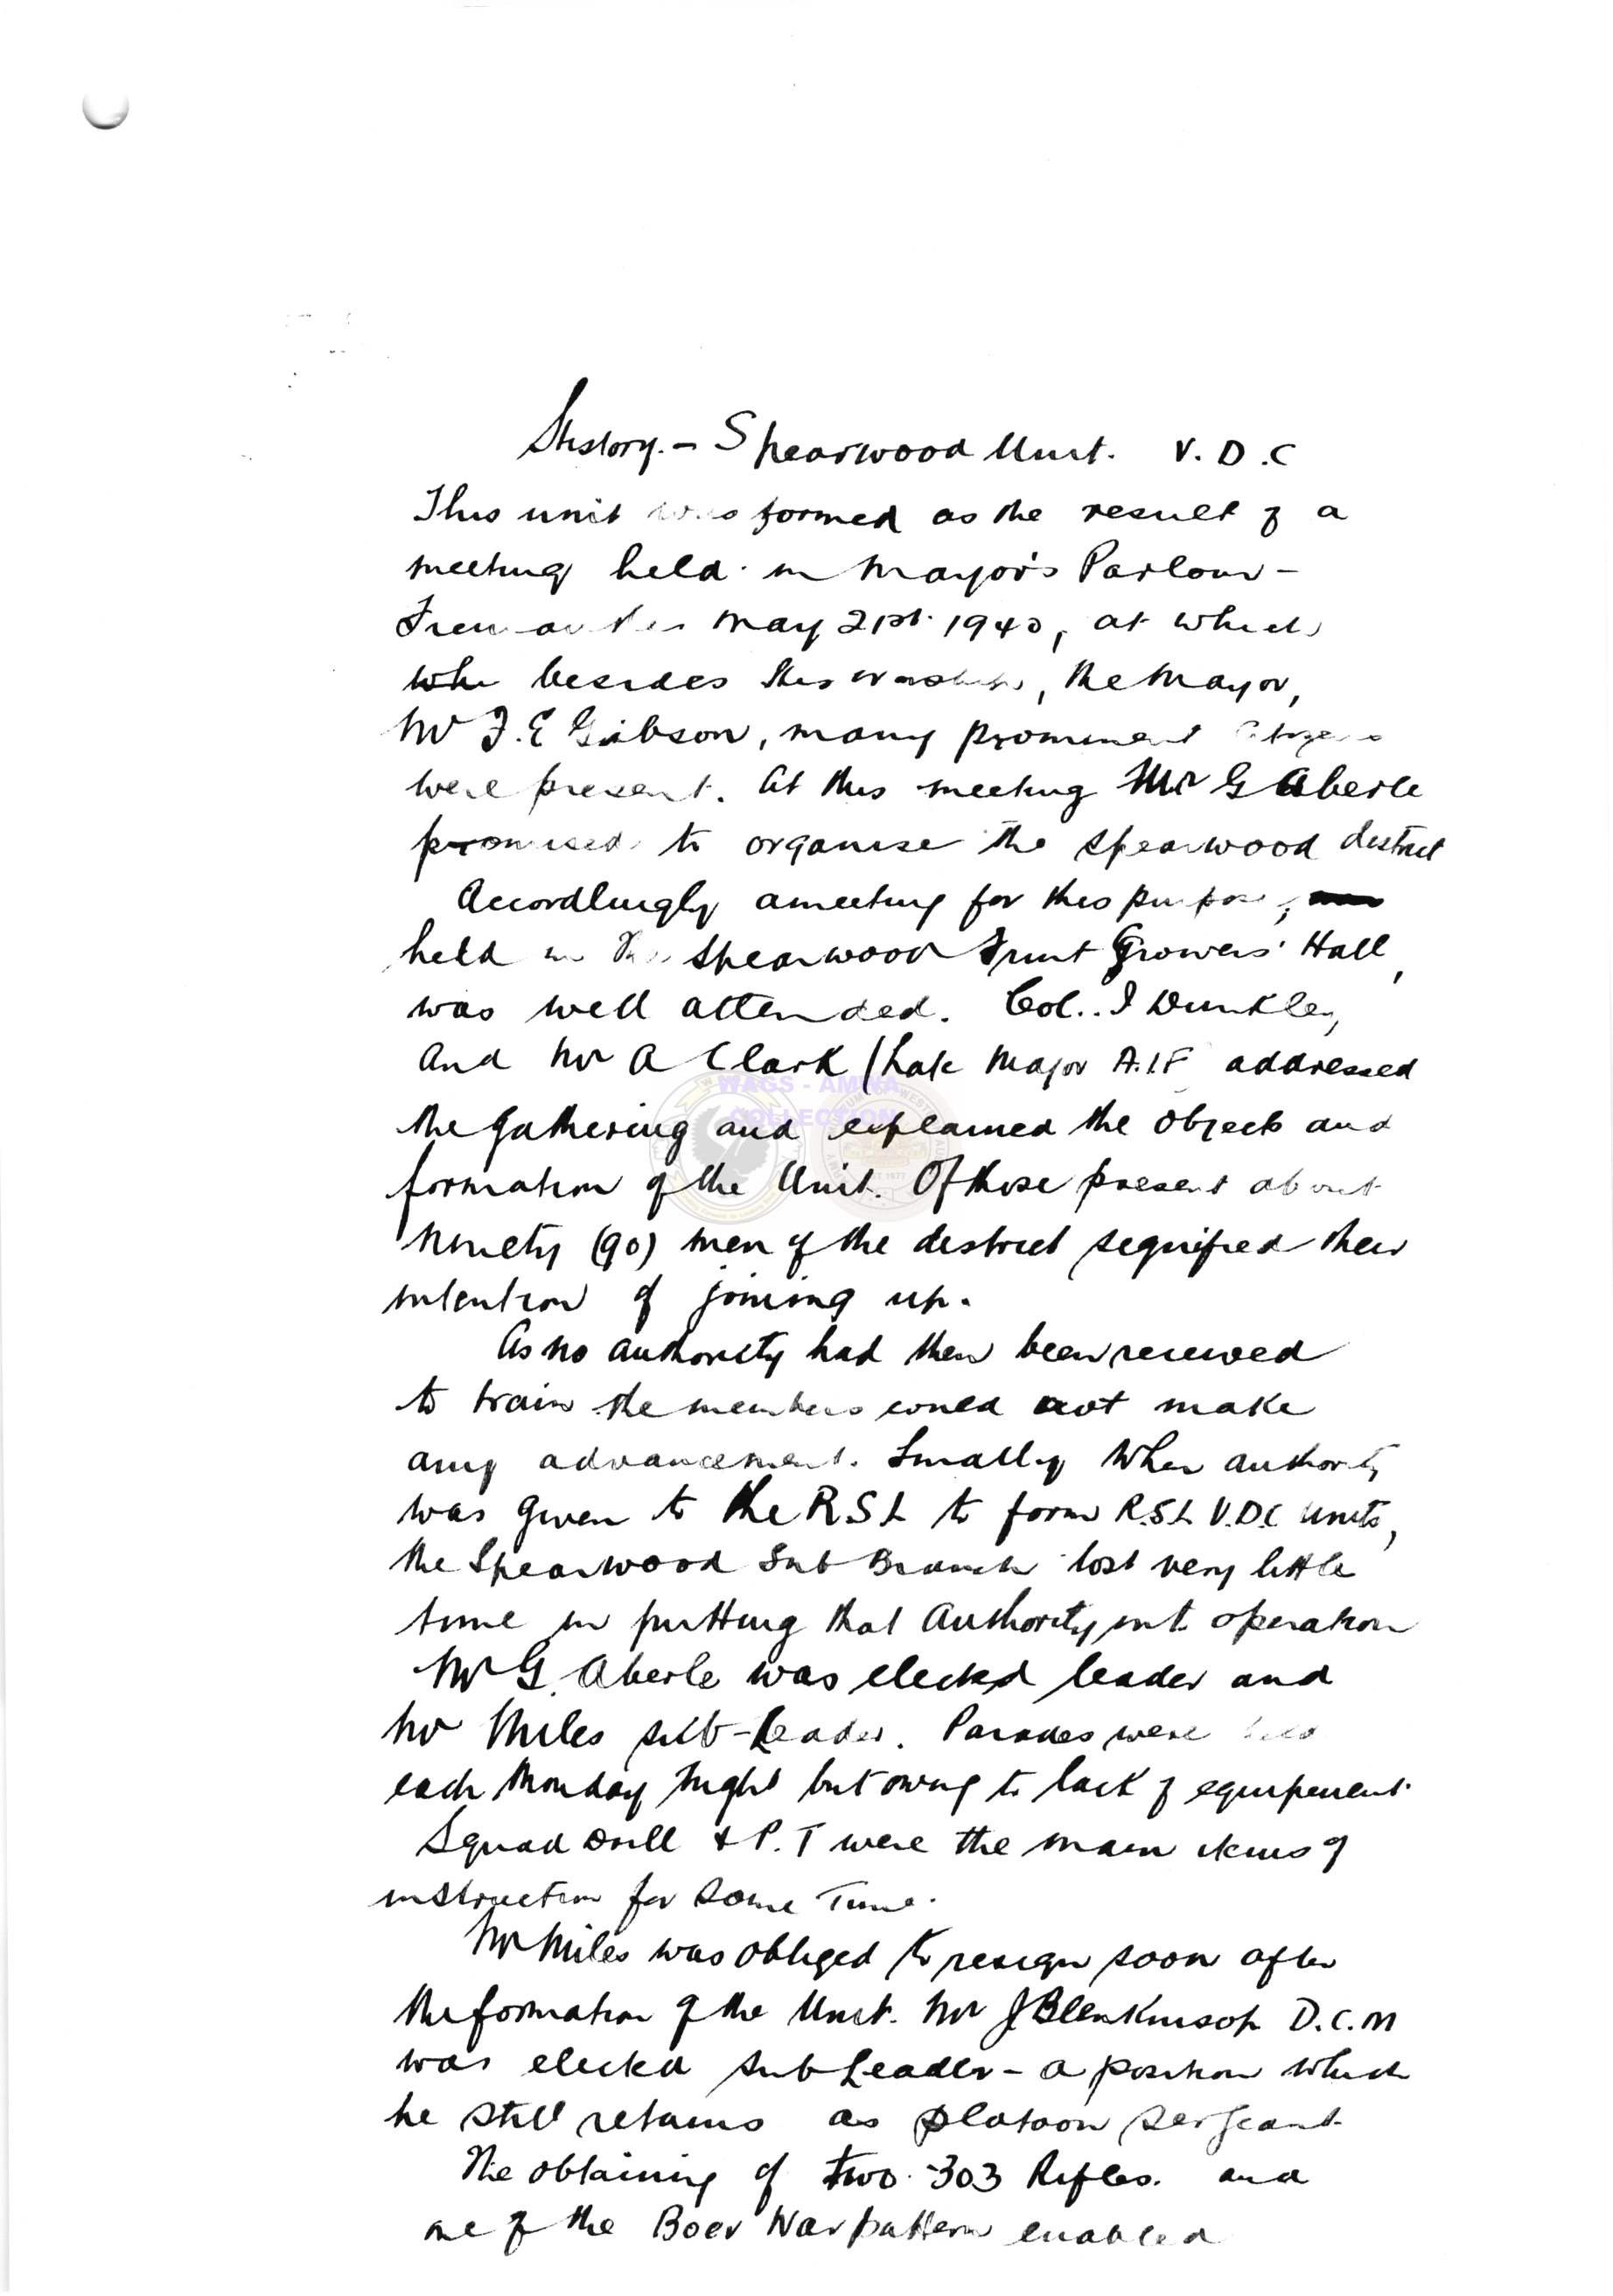 History. - Spearwood Unit. V.D.C
This unit was formed as the result of a
meeting held in Mayor's Parlour -
Fremantle May 21st. 1940, at which
who besides his worship, the Mayor,
Mr F.E Gibson, many prominent citizens
were present. At this meeting Mr G Aberle
promised to organise the Spearwood district
Accordlingly a meeting for this purpose,
held in the Spearwood Fruit Growers' Hall,
was well attended. Col.. I Dunkley,
and Mr A Clark (Late Major A.I.F addressed
WAGS - AMWA
COLLECTION
the gathering and explained the objects and
formation of the Unit. Of those present about
Ninety (90) men of the district signified their
intention of joining up.
As no authority had then been received
to train the members could not make
any advancement. Finally when authority
was given to the R.S.L to form R.S.L V.D.C units,
the Spearwood Sub Branch lost very little
time in putting that authority into operation
Mr G. Aberle was elected leader and
Mr Miles sub-Leader. Parades were held
each Monday night but owing to lack of equipement
Squad Drill & P.T were the main items of
instruction for some Time.
Mr Miles was obliged to resign soon after
the formation of the Unit. Mr J Blenkinsop D.C.M
was elected sub Leader - a position which
he still retains as platoon Sergeant
The obtaining of two .303 Rifles. and
one of the Boer War pattern enabled